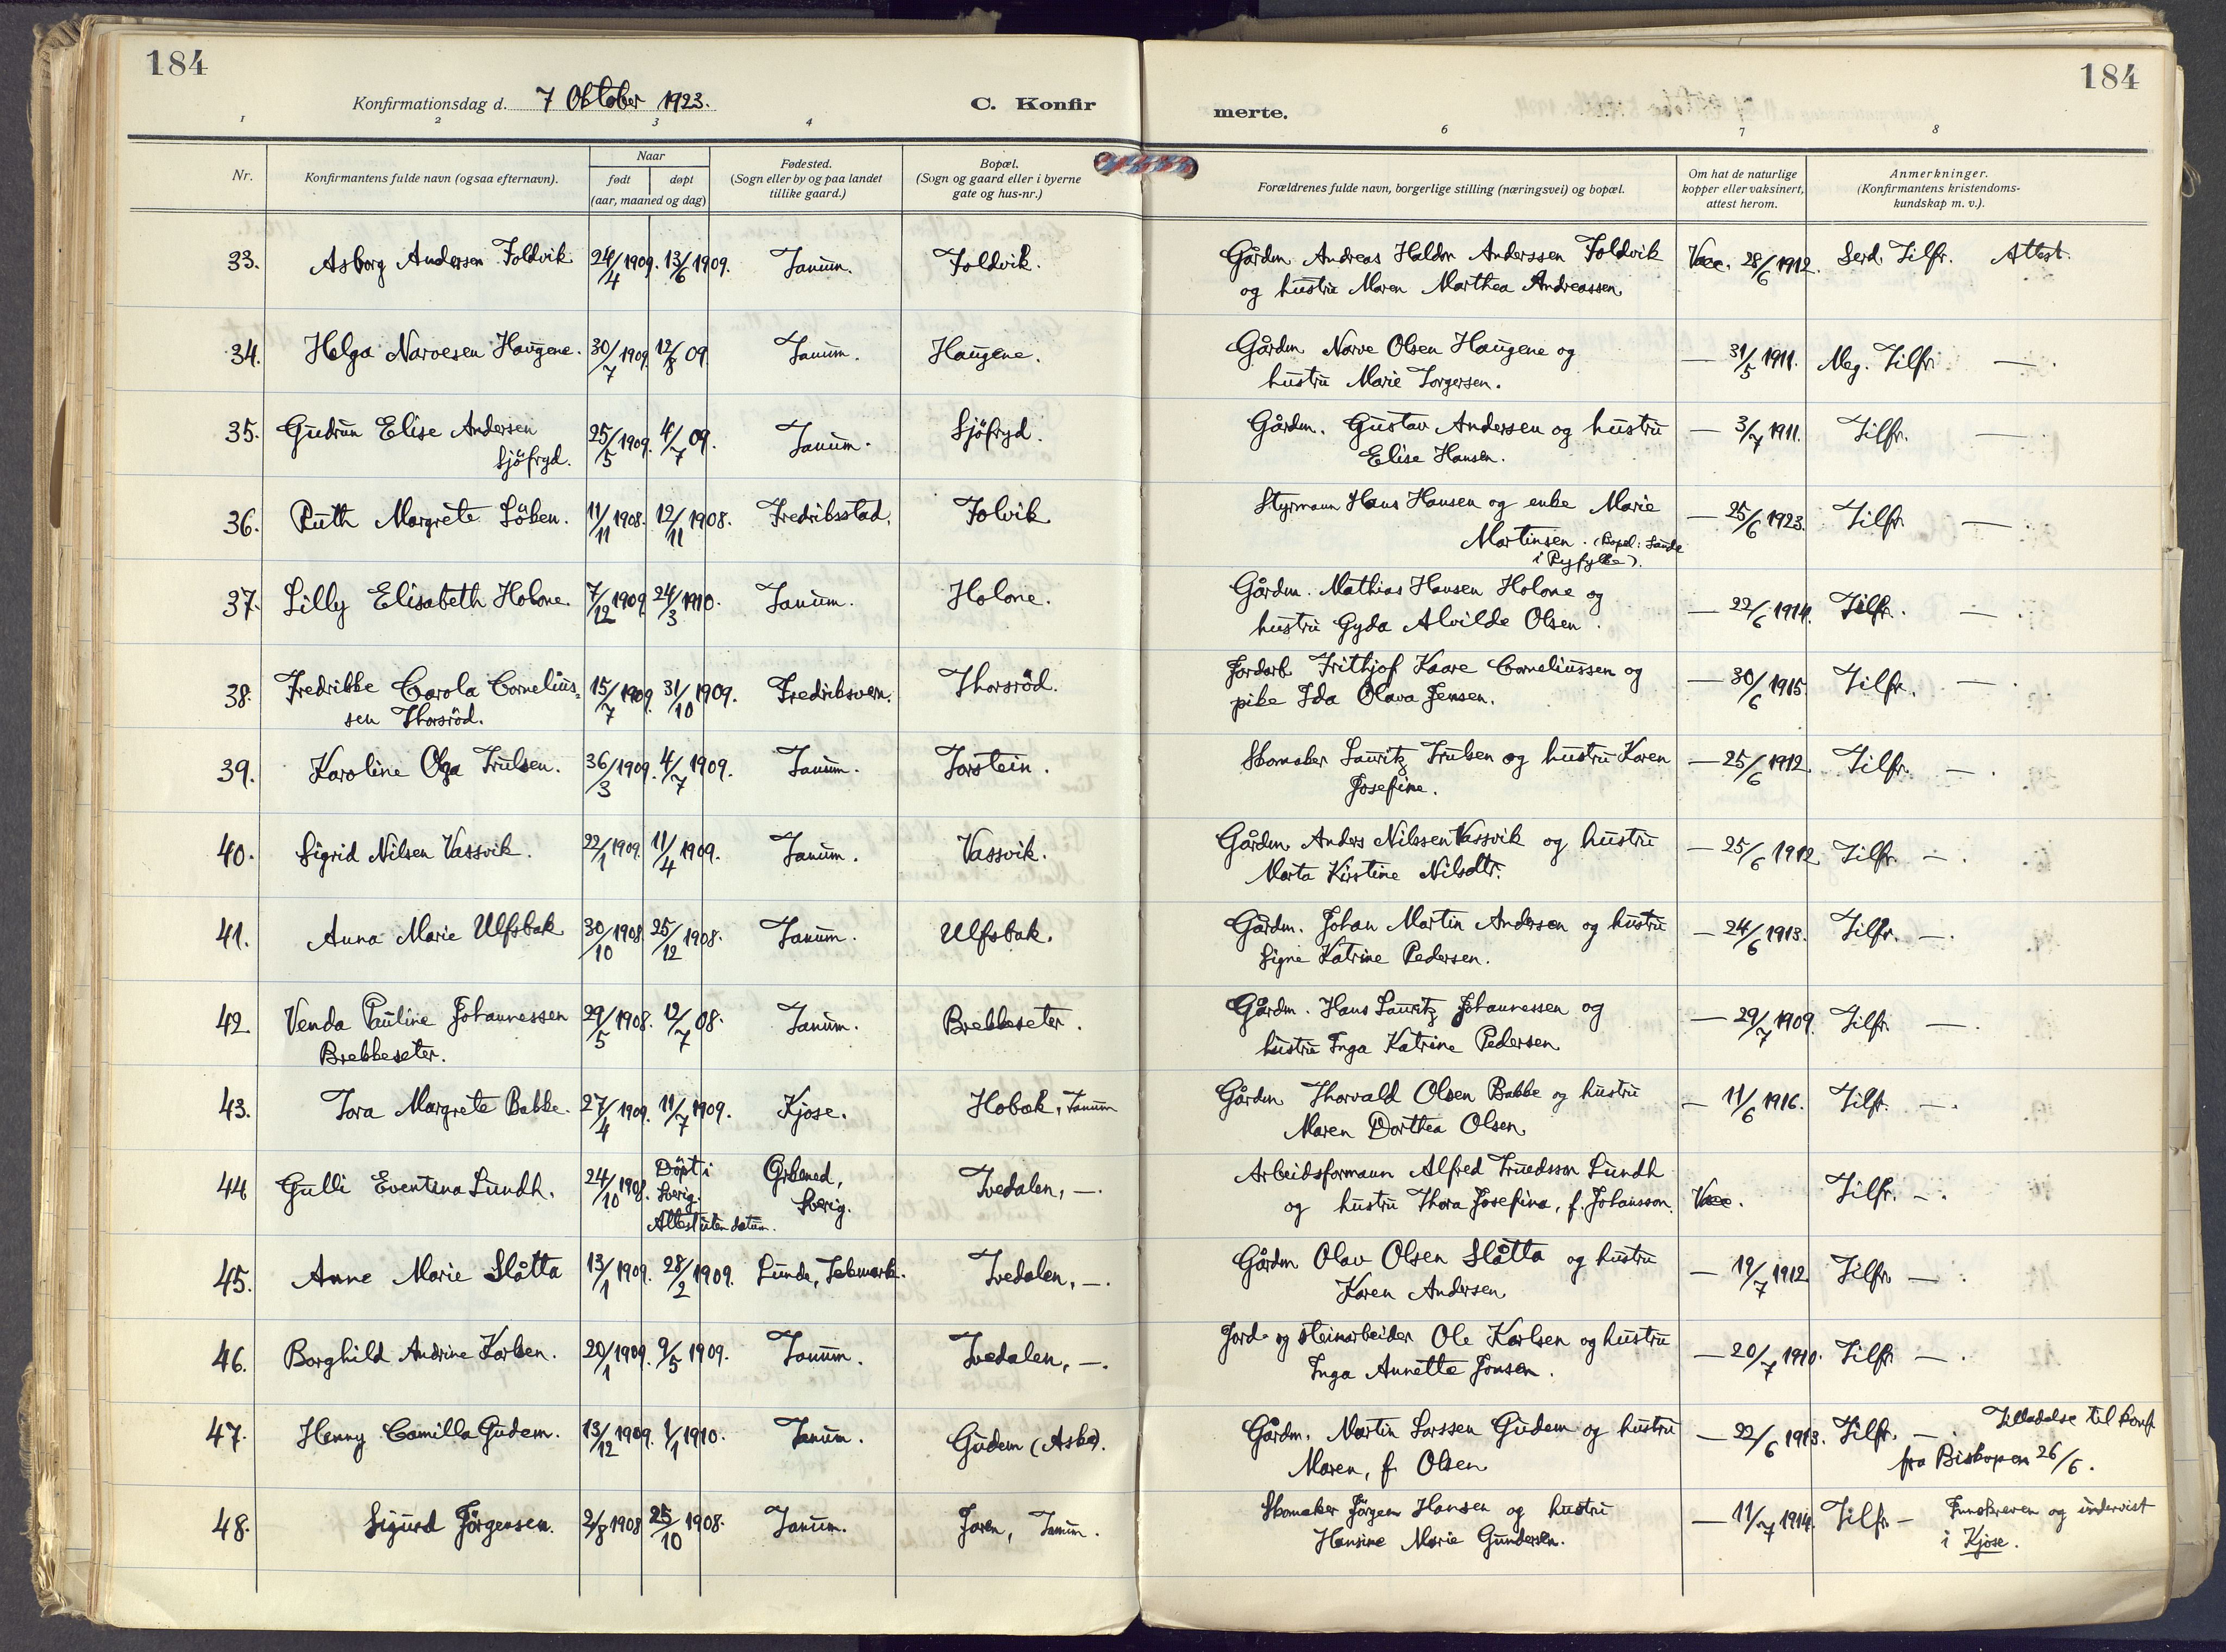 184
184
Konfirmationsdag d. 7 Oktober 1923.
C. Konfir
merte.
1 2 3 4 6 7 8
Nr.
Konfirmantens fulde navn (ogsaa efternavn).
Naar
født døpt
(aar, maaned og dag)
Fødested.
(Sogn eller by og paa landet
tillike gaard.)
Bopæl.
(Sogn og gaard eller i byerne
gate og hus-nr.)
Forældrenes fulde navn, borgerlige stilling (næringsvei) og bopæl.
Om hat de naturlige
kopper eller vaksinert,
attest herom.
Anmerkninger.
(Konfirmantens kristendoms-
kundskap m. v.).
33. Asborg Andersen Foldvik 24/4 1909. 13/6 1909. Tanum. Foldvik. Gårdm. Andreas Haldor Anderssen Foldvik Vacc. 28/6 1912. Serd. Tilfr. Attest.
og hustru Maren Marthea Andreassen
34. Helga Narvesen Haugene. 30/7 1909. 12/8 09. Tanum. Haugene. Gårdm. Narve Olsen Haugene og — 31/5 1911. Meg. Tilfr. —.
hustru Marie Torgersen.
35. Gudrun Elise Andersen 25/5 1909. 4/7 09. Tanum. Sjöfryd. Gårdm. Gustav Andersen og hustru — 3/7 1911. Tilfr. —.
Sjöfryd. Elise Hansen.
36. Ruth Margrete Löken. 11/11 1908. 12/11 1908. Fredriksstad. Folvik Styrmann Hans Hansen og enke Marie — 25/6 1923. Tilfr. —.
Martinsen. (Bopel: Sande
i Ryfylke).
37. Lilly Elisabeth Holone. 7/12 1909. 24/3 1910. Tanum. Holone. Gårdm. Mathias Hansen Holone og — 22/6 1914. Tilfr. —.
hustru Gyda Alvilde Olsen.
38. Fredrikke Carola Cornelius= 15/7 1909. 31/10 1909. Fredriksvern. Thorsröd. Jordarb. Frithjof Kaare Corneliussen og — 30/6 1915. Tilfr. —.
sen Thorsröd. pike Ida Olava Jensen.
39. Karoline Olga Trulsen. 36/3 1909. 4/7 1909. Tanum. Torstein. Skomaker Lauritz Trulsen og hustru Karen — 25/6 1912. Tilfr. —.
Josefine.
40. Sigrid Nilsen Vassvik. 22/1 1909. 11/4 1909. Tanum. Vassvik. Gårdm. Anders Nilssen Vassvik og hustru — 25/6 1912 Tilfr. —.
Marta Kirstine Nilsdtr.
41. Anna Marie Ulfsbak 30/10 1908. 25/12 1908. Tanum. Ulfsbak. Gårdm. Johan Martin Andersen og hustru — 24/6 1913. Tilfr. —.
Signe Katrine Pedersen.
42. Venda Pauline Johannessen 29/5 1908. 12/7 08. Tanum. Brekkeseter. Gårdm. Hans Lauritz Johannessen og — 29/7 1909. Tilfr. —.
Brekkeseter. hustru Inga Katrine Pedersen
43. Tora Margrete Bakke. 27/4 1909. 11/7 1909. Kjose. Hobæk, Tanum Gårdm. Thorvald Olsen Bakke og hustru — 11/6 1916. Tilfr. —.
Maren Dorthea Olsen.
44 Gulli Eventina Lundh. 24/10 1908. Döpt i Grbened, Tvedalen, —. Arbeidsformann Alfred Truedsson Lundh Vacc. Tilfr. —.
Sverig. Sverig. og hustru Thora Josefina, f. Johansson.
Attest uten datum.
45. Anne Marie Slåtta 13/1 1909. 28/2 1909. Lunde, Telemark. Tvedalen, —. Gårdm Olav Olsen Slåtta og hustru — 19/7 1912 Tilfr. —.
Karen Andersen
46. Borghild Andrine Karlsen. 20/1 1909. 9/5 1909. Tanum. Tvedalen, —. Jord- og steinarbeider Ole Karlsen og hustru — 20/7 1910. Tilfr. —.
Inga Annette Jonsen.
47. Henny Camilla Gudem. 13/12 1909. 1/1 1910. Tanum. Gudem (Aske). Gårdm. Martin Larssen Gudem og hustru — 22/6 1913. Tilfr. —. Tilladelse til konf.
Maren, f. Olsen fra Biskopen 26/6.
48. Sigurd Jörgensen. 2/8 1908 25/10 1908. Tanum. Jaren, Tanum. Skomaker Jörgen Hansen og hustru — 11/7 1914. Tilfr — Innskreven og undervist
Hansine Marie Gundersen. i Kjose.